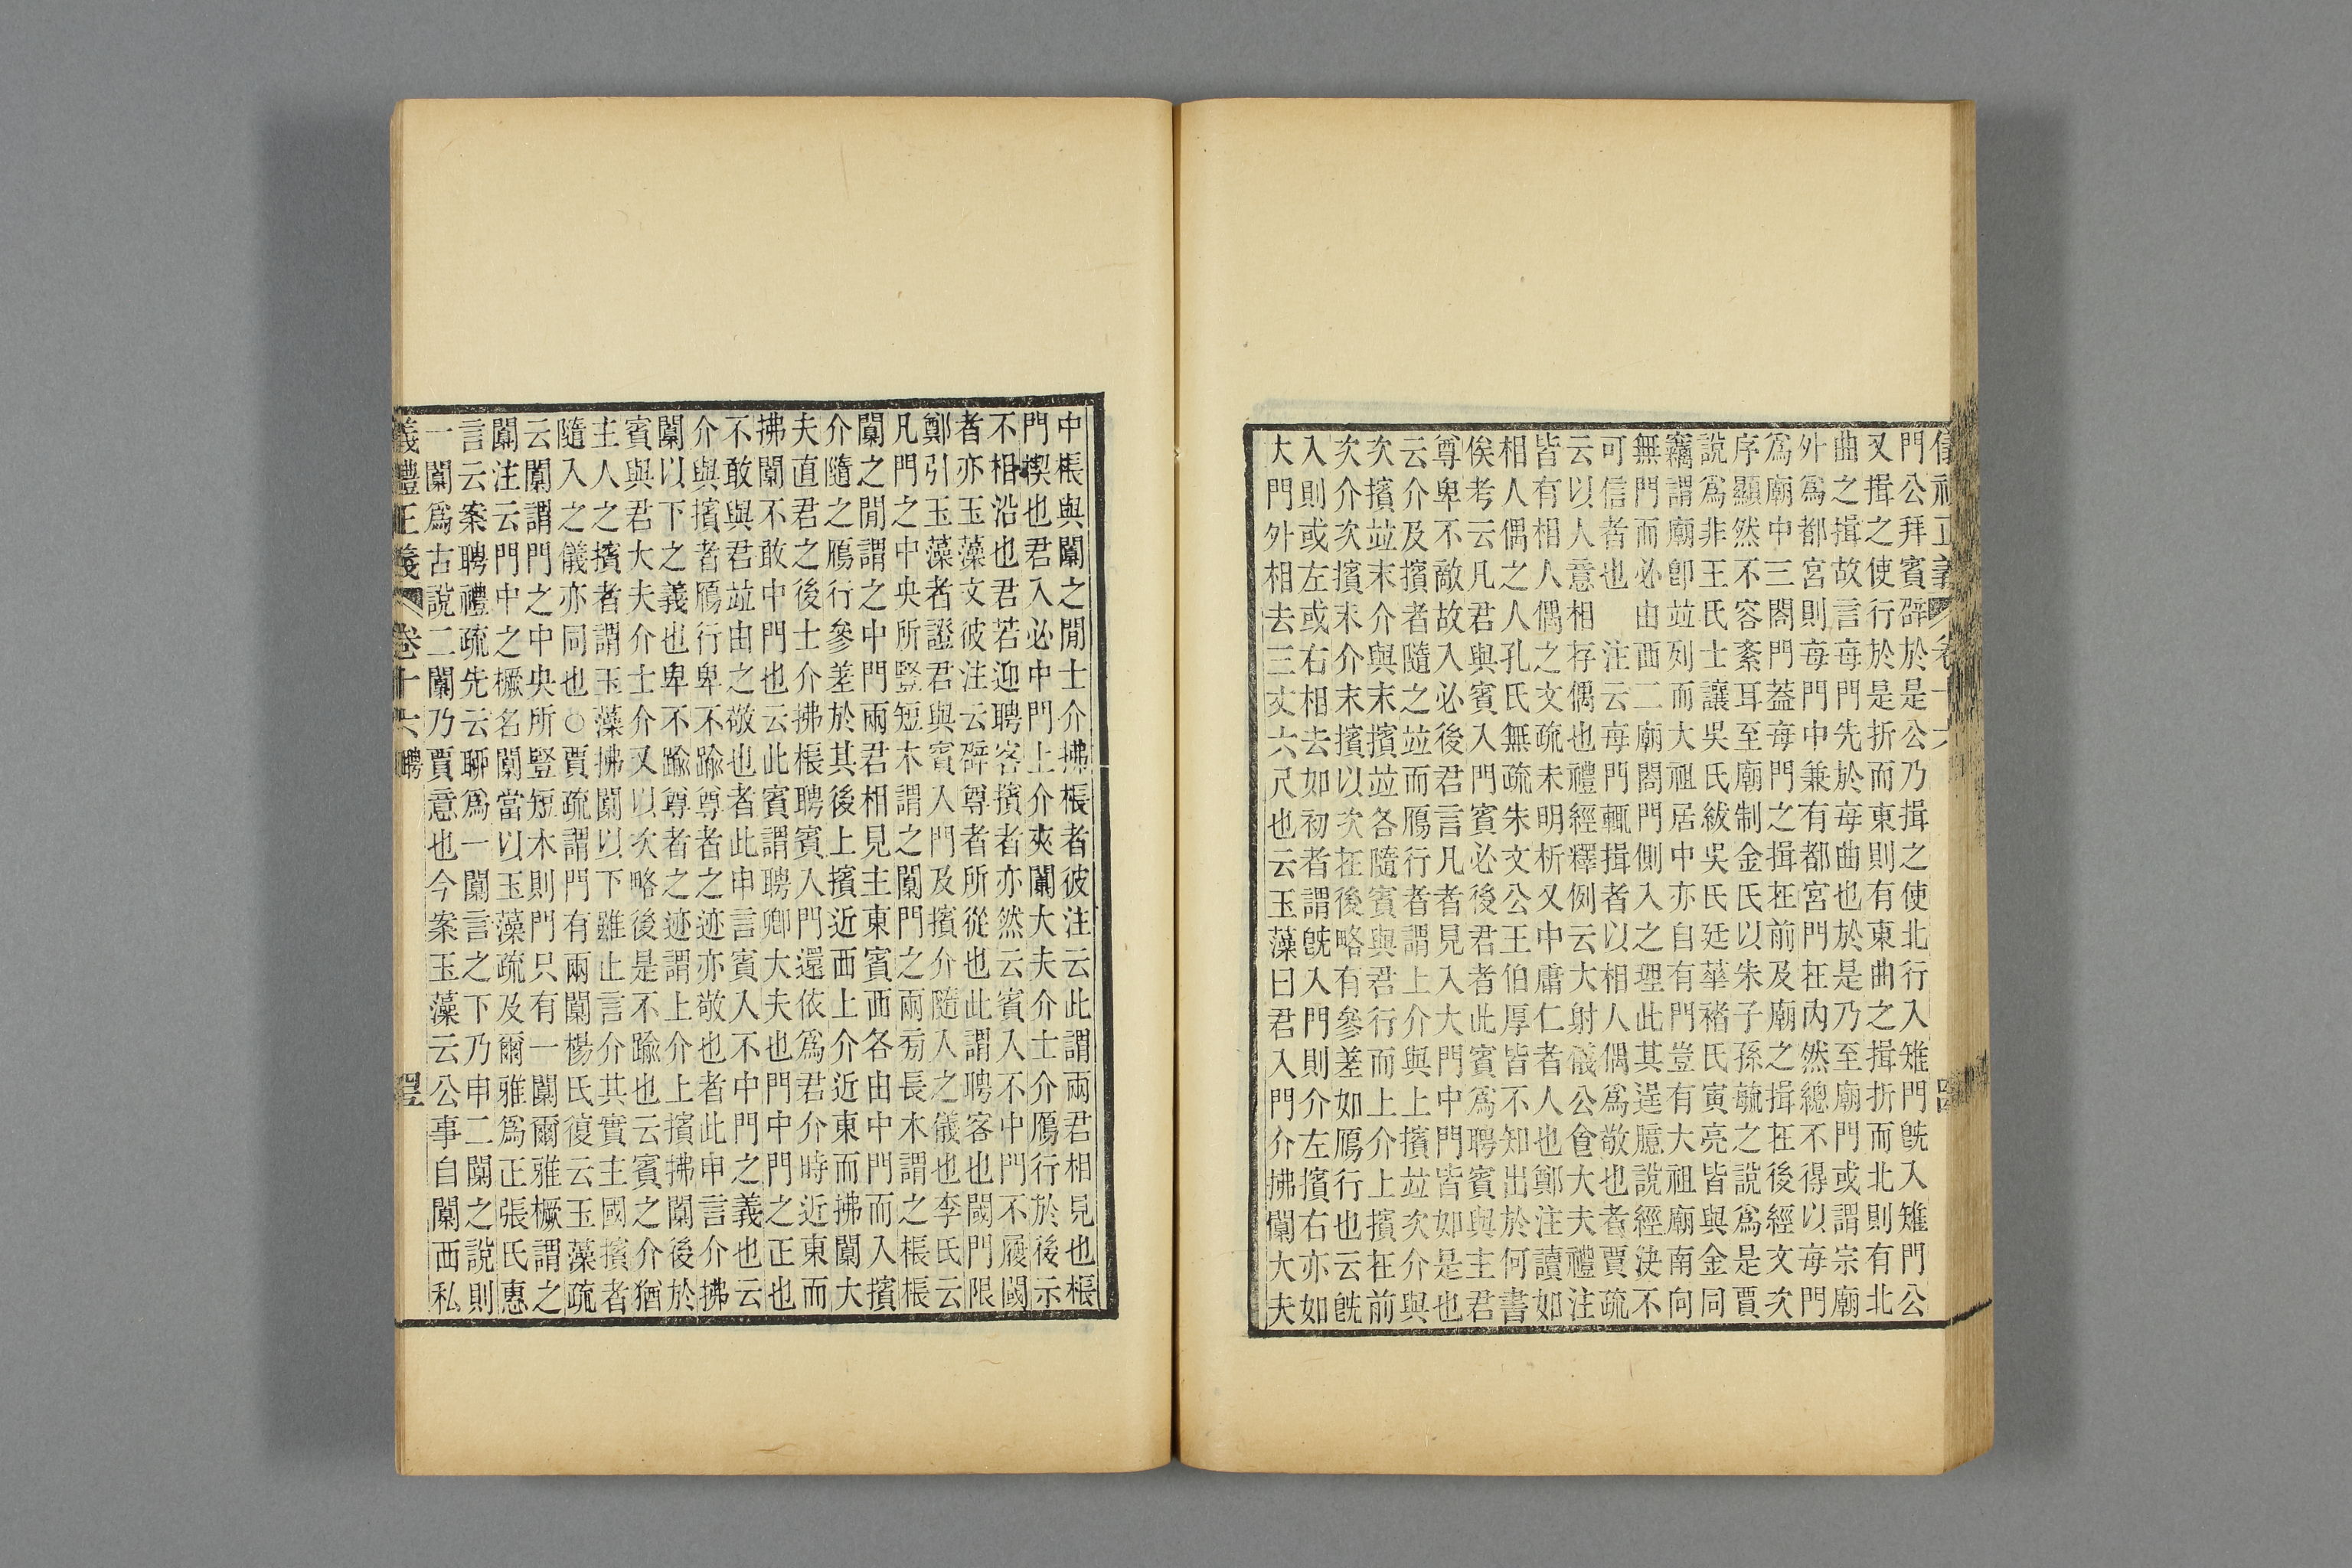 門公拜賓辟於是公乃揖之使北行入雉門旣入雉門公
又揖之使行於是折而東則有東曲之揖折而北則有北
曲之揖故言每門先於每曲也於是乃至廟門或謂宗廟
外爲都宮則每門中兼有都宮門在內然總不得以每門
爲廟中三閤門葢每門之揖在前及廟之揖在後經文次
序顯然不容紊耳至廟制金氏以朱子孫毓之說爲是賈
說爲非王氏士讓吳氏紱吳氏廷華褚氏寅亮皆與金同
竊謂廟卽竝列而大祖居中亦自有門豈有大祖廟南向
無門而必由西二廟閤門側入之理此其逞臆說經決不
可信者也 注云每門輒揖者以相人偶爲敬也者賈疏
云以人意相存偶也禮經釋例云大射儀公食大夫禮注
皆有相人偶之文疏未明析又中庸仁者人也鄭注讀如
相人偶之人孔氏無疏朱文公王伯厚皆不知出於何書
俟考云凡君與賓入門賓必後君者此賓爲聘賓與主君
尊卑不敵故入必後君言凡者見入大門中門皆如是也
云介及擯者隨之竝而鴈行者謂上介與上擯竝次介與
次擯竝末介與末擯竝各隨賓與君行而上介上擯在前
次介次擯末介末擯以次在後略有參差如鴈行也云旣
入則或左或右相去如初者謂旣入門則介左擯右亦如
大門外相去三丈六尺也云玉藻曰君入門介拂闑大夫
中棖與闑之閒士介拂棖者彼注云此謂兩君相見也棖
門楔也君入必中門上介夾闑大夫介士介鴈行於後示
不相沿也君若迎聘客擯者亦然云賓入不中門不履閾
者亦玉藻文彼注云辟尊者所從也此謂聘客也閾門限
鄭引玉藻者證君與賓入門及擯介隨入之儀也李氏云
凡門之中央所豎短木謂之闑門之兩旁長木謂之棖棖
闑之閒謂之中門兩君相見主東賓西各由中門而入擯
介隨之鴈行參差於其後上擯近西上介近東而拂闑大
夫直君之後士介拂棖聘賓入門還依爲君介時近東而
拂闑不敢中門也云此賓謂聘卿大夫也門中門之正也
不敢與君竝由之敬也者此申言賓入不中門之義也云
介與擯者鴈行卑不踰尊者之迹亦敬也者此申言介拂
闑以下之義也卑不踰尊者之迹謂上介上擯拂闑後於
賓與君大夫介士介又以次略後是不踰也云賓之介猶
主人之擯者謂玉藻拂闑以下雖止言介其實主國擯者
隨入之儀亦同也○賈疏謂門有兩闑楊氏復云玉藻疏
云闑謂門之中央所豎短木則門只有一闑爾雅橛謂之
闑注云門中之橛名闑當以玉藻疏及爾雅爲正張氏惠
言云案聘禮疏先云聊爲一闑言之下乃申二闑之說則
一闑爲古說二闑乃賈意也今案玉藻云公事自闑西私
義禮正義 卷十六 聘